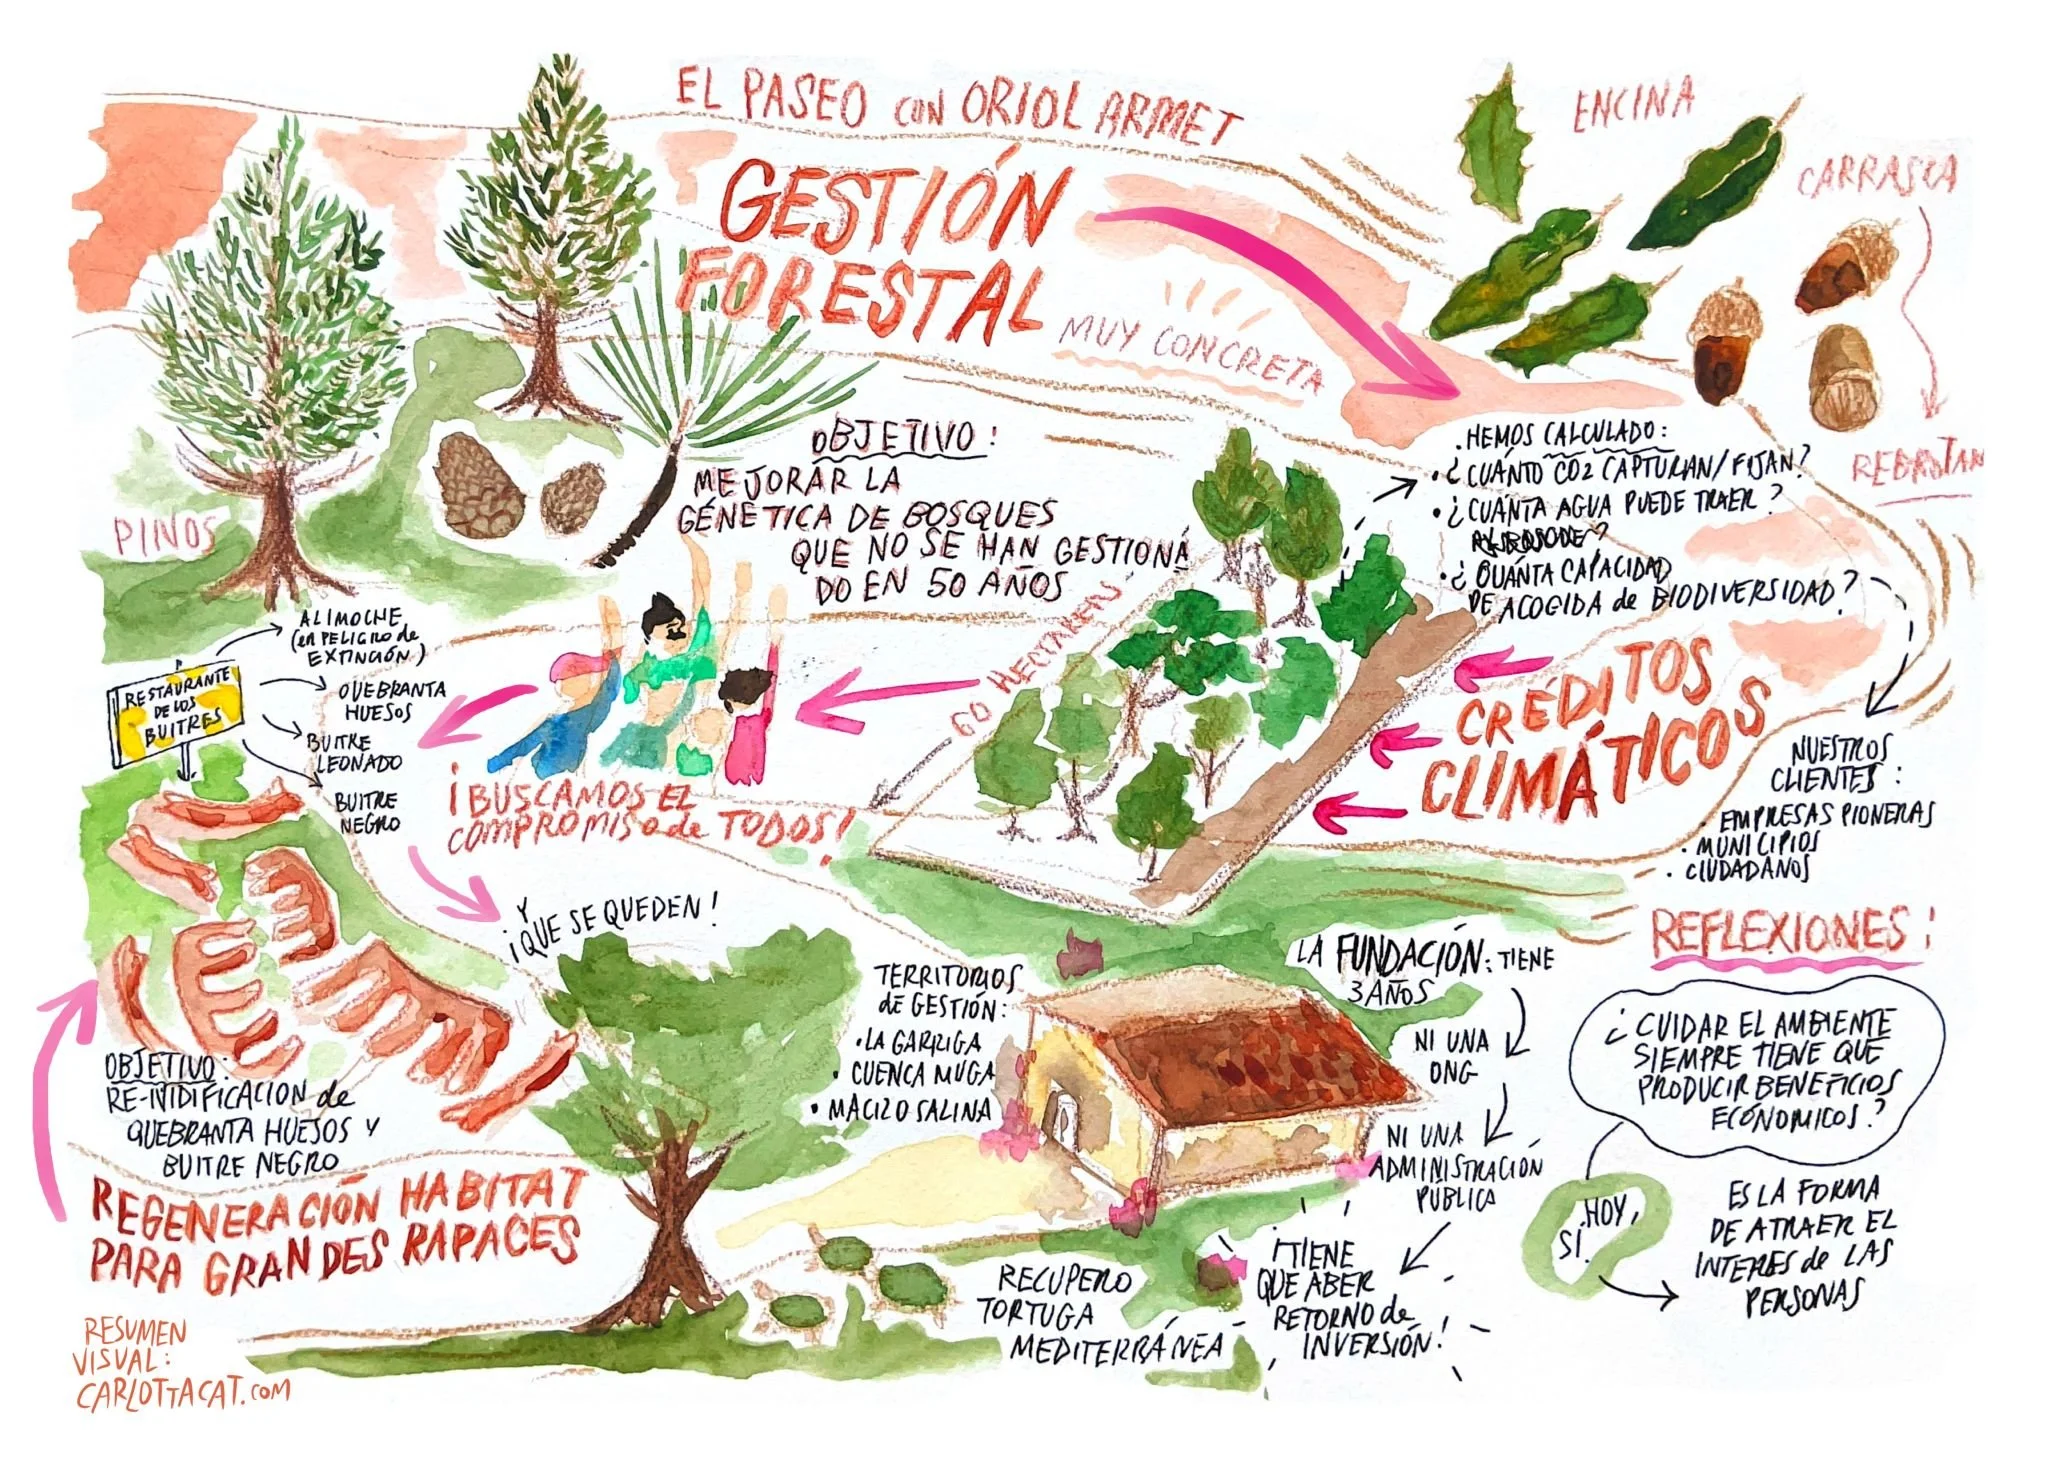 EL PASEO CON ORIOL ARMET
GESTIÓN
FORESTAL
MUY CONCRETA
ENCINA
CARRASCA
REBROTAN
PINOS
OBJETIVO:
MEJORAR LA
GÉNETICA DE BOSQUES
QUE NO SE HAN GESTIONA
DO EN 50 AÑOS
. HEMOS CALCULADO:
• ¿CUÁNTO CO2 CAPTURAN/FIJAN?
• ¿CUÁNTA AGUA PUEDE TRAER?
• ¿QUÁNTA CAPACIDAD
DE ACOGIDA de BIODIVERSIDAD?
60 HECTAREAS
CREDITOS
CLIMÁTICOS
NUESTROS
CLIENTES:
• EMPRESAS PIONERAS
• MUNICIPIOS
• CIUDADANOS
¡BUSCAMOS EL
COMPROMISO de TODOS!
RESTAURANTE
DE LOS
BUITRES
ALIMOCHE
(en PELIGRO de
EXTINCIÓN)
QUEBRANTA
HUESOS
BUITRE
LEONADO
BUITRE
NEGRO
Y
¡QUE SE QUEDEN!
OBJETIVO:
RE-NIDIFICACION de
QUEBRANTA HUESOS Y
BUITRE NEGRO
REGENERACIÓN HABITAT
PARA GRANDES RAPACES
TERRITORIOS
de GESTIÓN:
• LA GARRIGA
• CUENCA MUGA
• MACIZO SALINA
LA FUNDACIÓN: TIENE
3 AÑOS
NI UNA
ONG
NI UNA
ADMINISTRACIÓN
PÚBLICA
¡TIENE
QUE ABER
RETORNO de
INVERSIÓN!
RECUPERO
TORTUGA
MEDITERRÁNEA
REFLEXIONES:
¿CUIDAR EL AMBIENTE
SIEMPRE TIENE QUE
PRODUCIR BENEFICIOS
ECÓNOMICOS?
HOY,
SÍ.
ES LA FORMA
DE ATRAER EL
INTERES de LAS
PERSONAS
RESUMEN
VISUAL:
CARLOTTACAT.COM